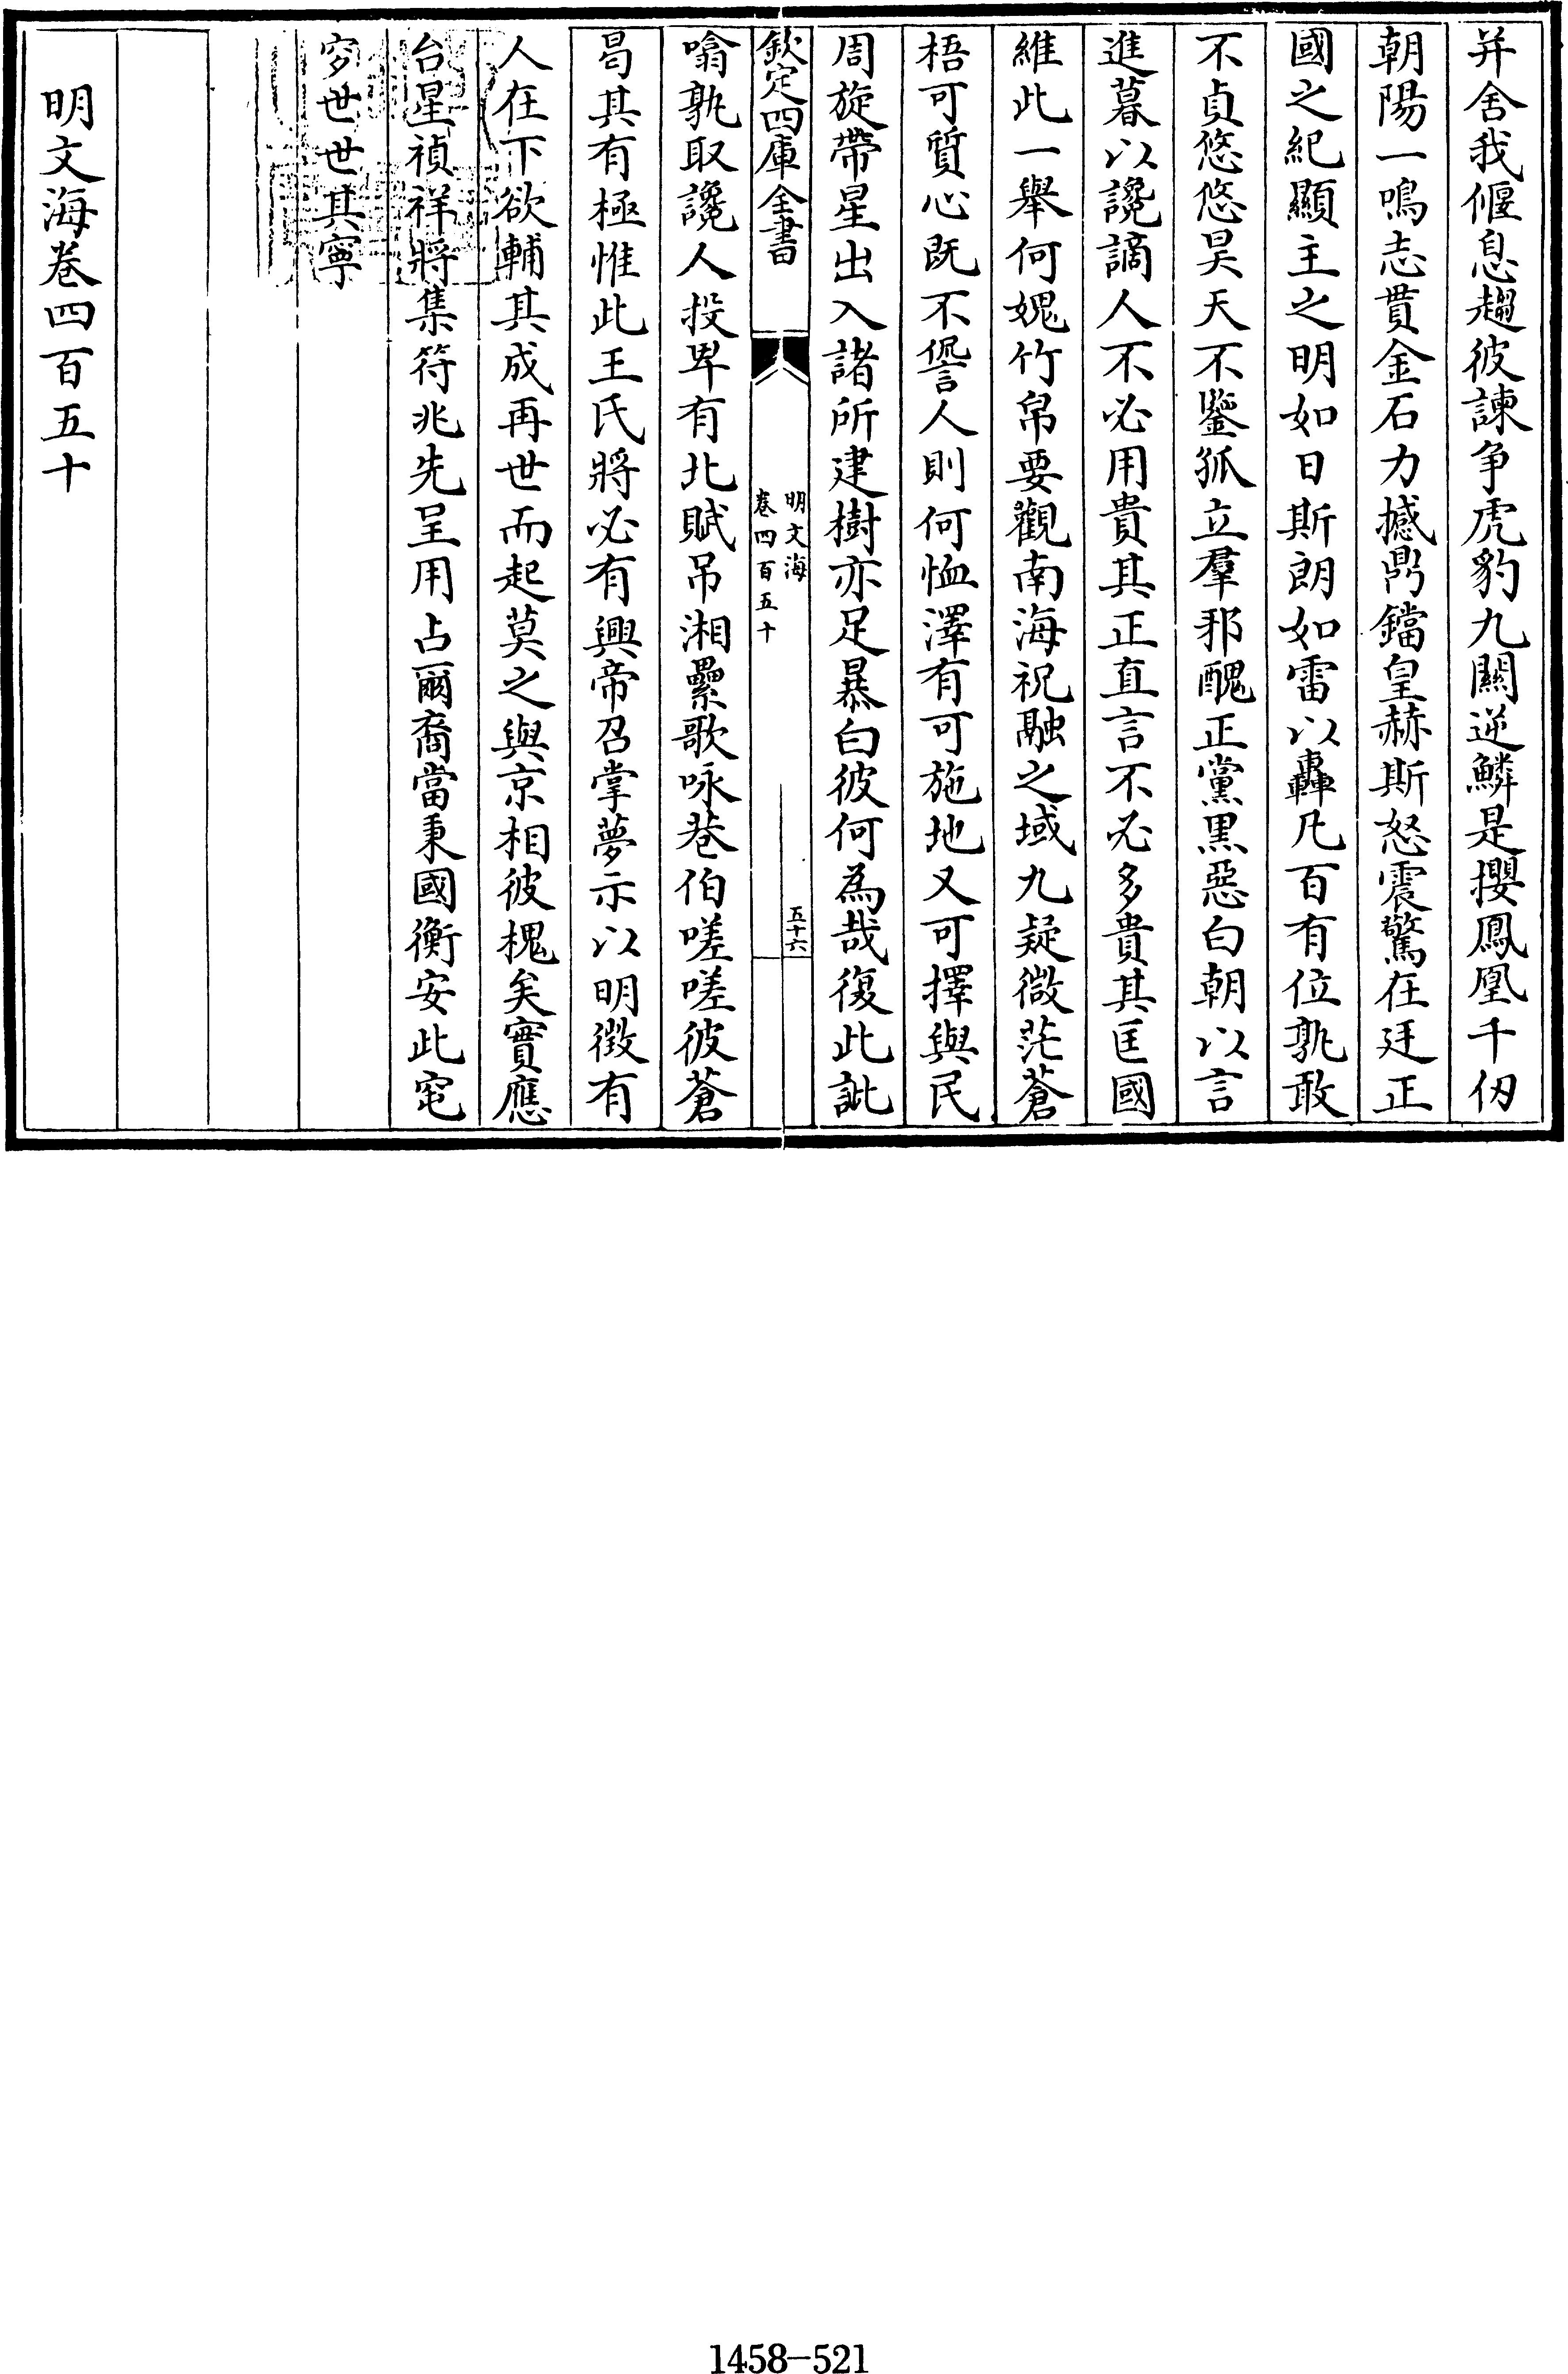 并舍我偃息趨彼諫爭虎豹九關逆鱗是攖鳳凰千仞
朝陽一鳴志貫金石力撼鼎鐺皇赫斯怒震驚在廷正
國之紀顯主之明如日斯朗如雷以轟凡百有位孰敢
不貞悠悠昊天不鑒孤立羣邪醜正黨黒惡白朝以言
進暮以讒謫人不必用貴其正直言不必多貴其匡國
維此一舉何媿竹帛要觀南海祝融之域九疑微茫蒼
梧可質心既不諐人則何恤澤有可施地又可擇與民
周旋帶星出入諸所建樹亦足暴白彼何為哉復此訿
欽定四庫全書
明文海
卷四百五十
五十六
噏孰取讒人投畀有北賦吊湘纍歌咏巷伯嗟嗟彼蒼
曷其有極惟此王氏將必有興帝召掌夢示以明徴有
人在下欲輔其成再世而起莫之與京相彼槐矣實應
台星禎祥將集符兆先呈用占爾裔當秉國衡安此窀
穸世世其寧
明文海卷四百五十
1458-521